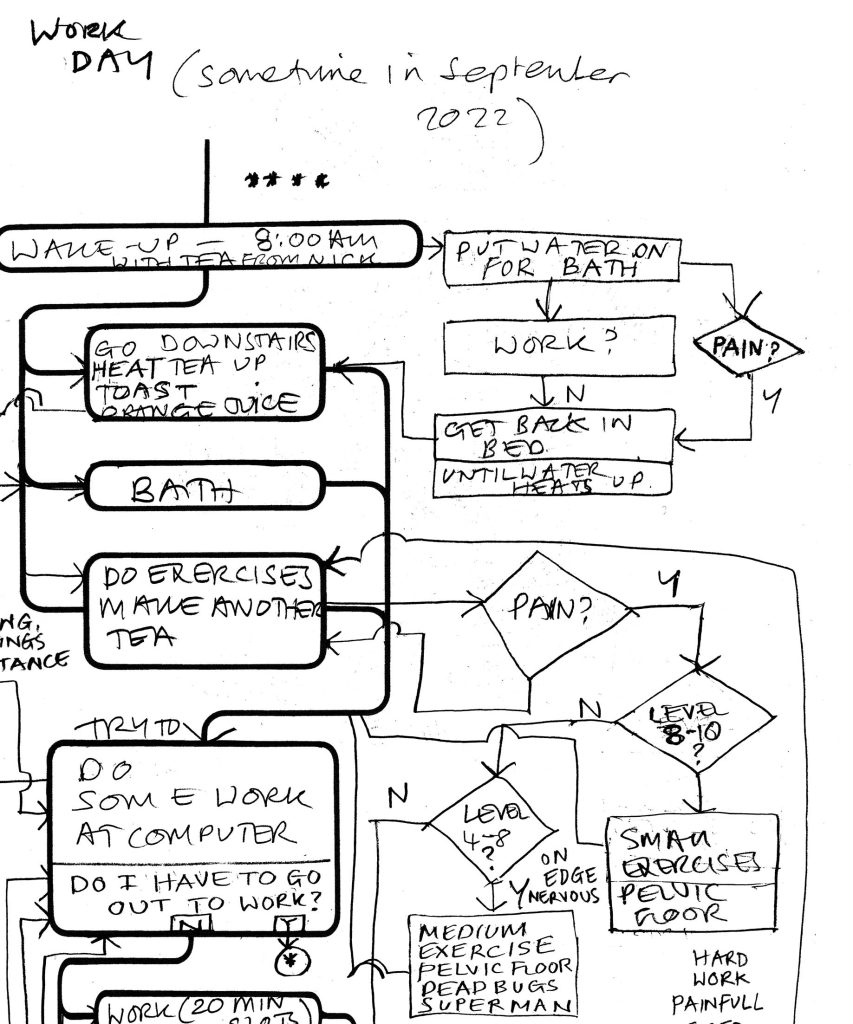 WORK
DAY (sometime in September
2022)
****
WAKE-UP — 8:00AM
WITH TEA FROM NICK
PUT WATER ON
FOR BATH
WORK?
PAIN?
N
Y
GET BACK IN
BED
UNTIL WATER
HEATS UP.
GO DOWNSTAIRS
HEAT TEA UP
TOAST
ORANGE JUICE
BATH
DO EXERCISES
MAKE ANOTHER
TEA
PAIN?
Y
NG,
INGS
TANCE
LEVEL
8-10
?
N
TRY TO
DO
SOME WORK
AT COMPUTER
DO I HAVE TO GO
OUT TO WORK?
N
Y
*
N
LEVEL
4-8
?
Y
ON
EDGE
NERVOUS
SMALL
EXERCISES
PELVIC
FLOOR
MEDIUM
EXERCISE
PELVIC FLOOR
DEAD BUGS
SUPERMAN
HARD
WORK
PAINFULL
WORK (20 MIN